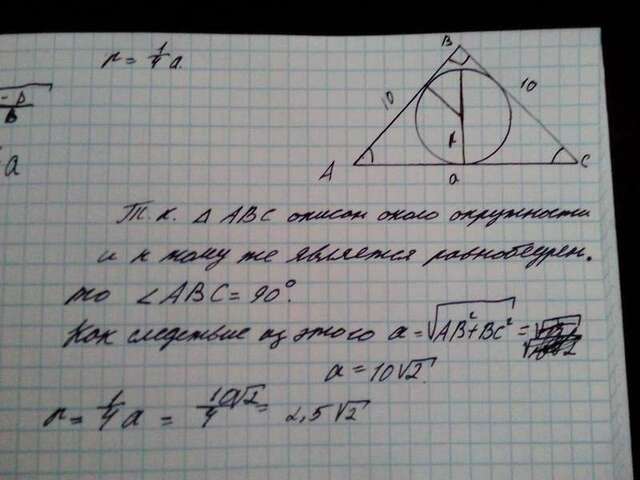 r = 1/4 a
B
10
10
r
A
a
C
a
Т.к. △ ABC описан около окружности
и к тому же является равнобедрен.
то ∠ABC = 90°.
Как следствие из этого a = √AB²+BC² =
a = 10√2.
r = 1/4 a = 10√2/4 = 2,5√2